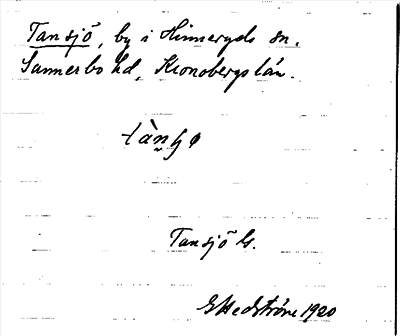 Tansjö, by i Hinneryds sn.
Sunnerbo hd, Kronobergs län.
Tansjö G.
G Hedström 1920